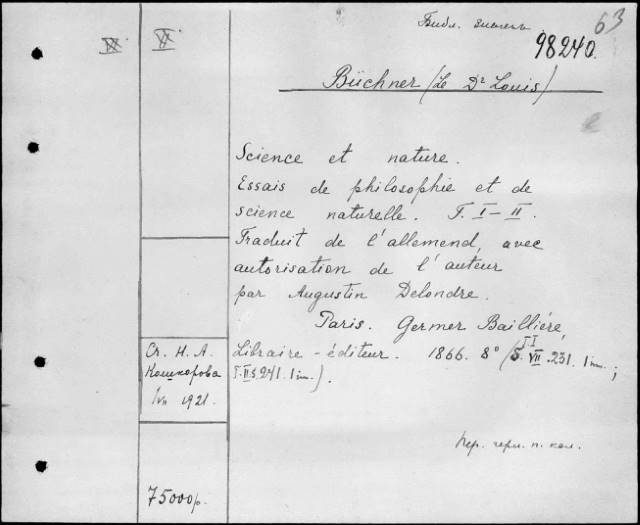 63
98240
Büchner (Le Dr Louis)
VI
Science et nature.
Essais de philosophie et de
science naturelle. T. I–II.
Traduit de l'allemend, avec
autorisation de l'auteur
par Augustin Delondre.
Paris. Germer Baillière,
Libraire-éditeur. 1866. 8° (T.I S. VII. 231. 1 im.;
T.II S. 241. 1 im.).
Ст. Н. А.
Кошкорова
1921.
75000р.